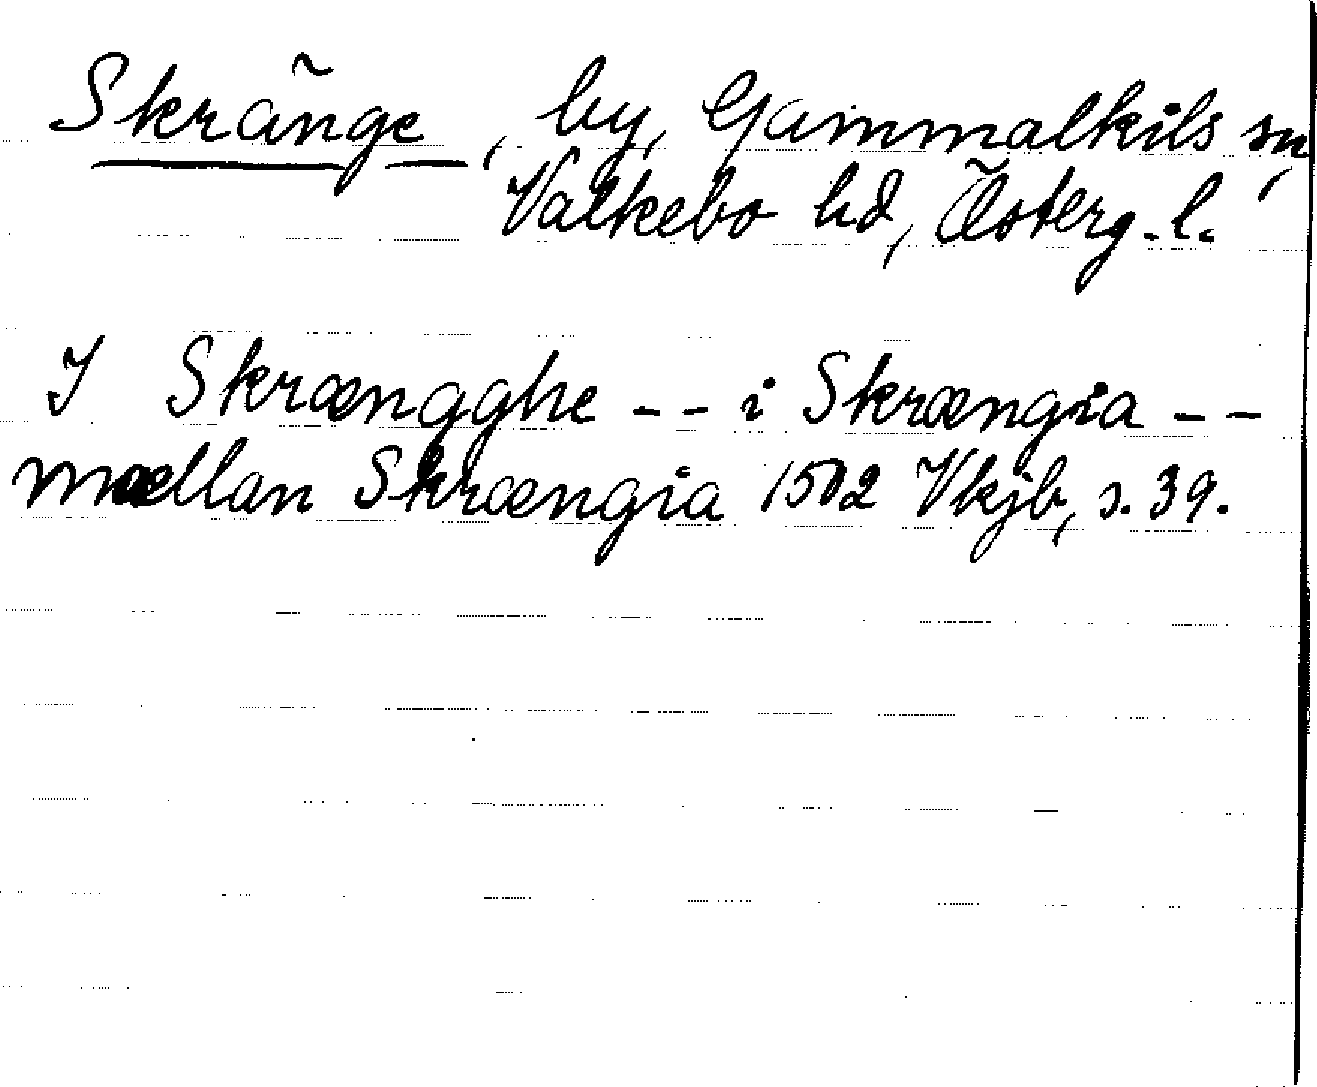 Skränge, by, Gammalkils sn,
Valkebo hd, Österg.l.
I Skrængghe -- i Skrængia --
mællan Skrængia 1502 Vkjb, s. 39.